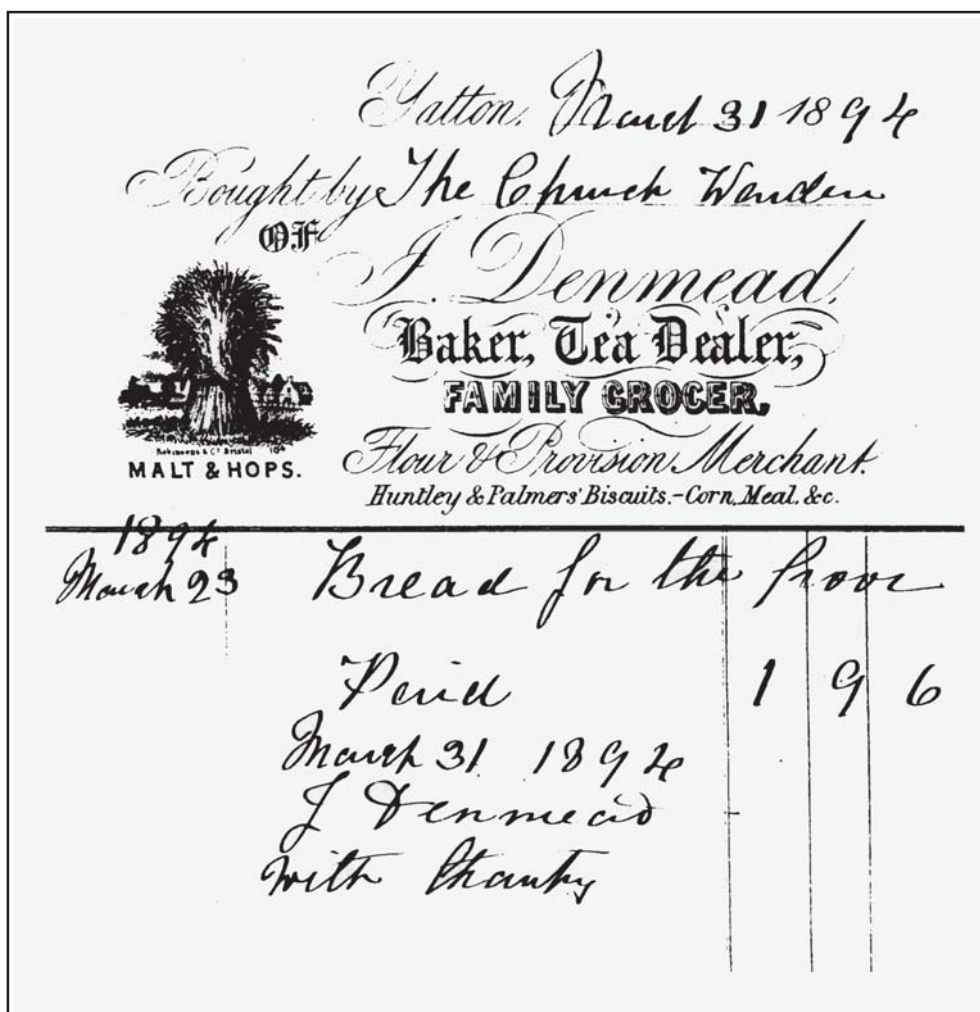 Yatton, March 31 1894
Bought by The Church Warden
OF
J. Denmead,
Baker, Tea Dealer,
FAMILY GROCER,
Flour & Provision Merchant.
Huntley & Palmers' Biscuits.-Corn, Meal, &c.
Robinsons & Co Bristol
MALT & HOPS.
1894
March 23 Bread for the Poor
Paid 1 9 6
March 31 1894
J Denmead
With Thanks